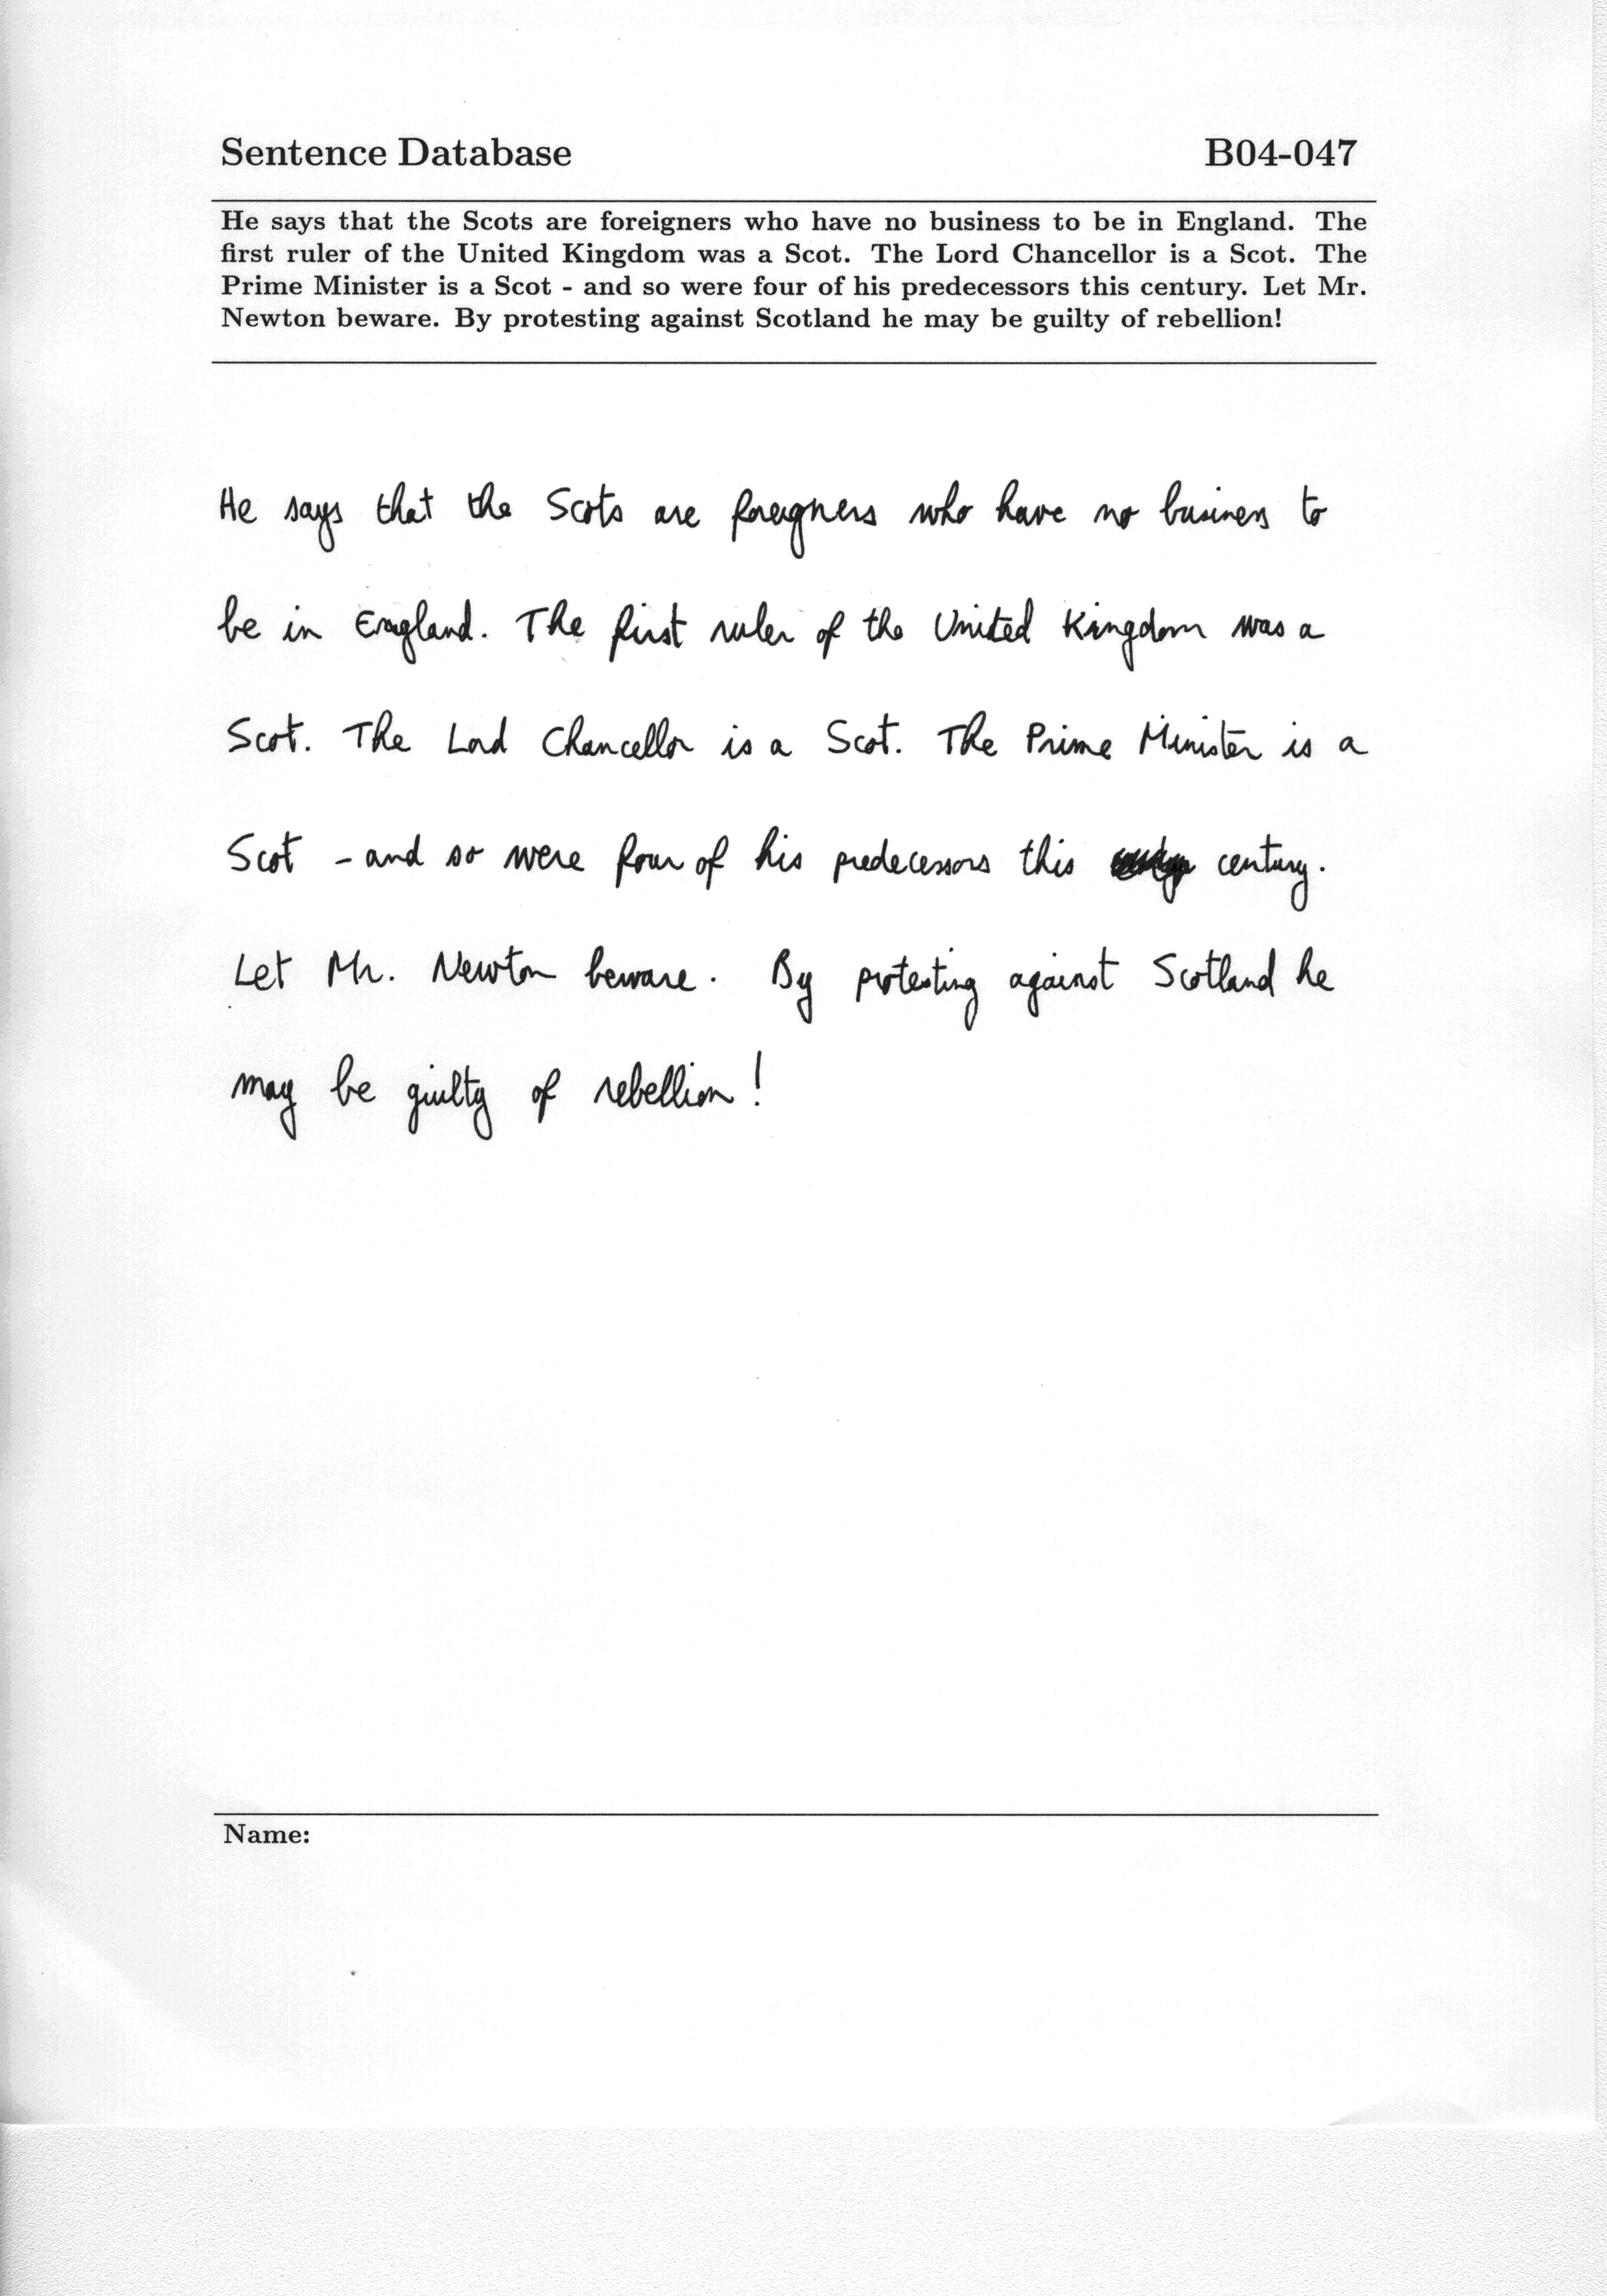 Sentence Database B04-047
He says that the Scots are foreigners who have no business to be in England. The
first ruler of the United Kingdom was a Scot. The Lord Chancellor is a Scot. The
Prime Minister is a Scot - and so were four of his predecessors this century. Let Mr.
Newton beware. By protesting against Scotland he may be guilty of rebellion!
He says that the Scots are foreigners who have no business to
be in England. The first ruler of the United Kingdom was a
Scot. The Lord Chancellor is a Scot. The Prime Minister is a
Scot - and so were four of his predecessors this century.
Let Mr. Newton beware. By protesting against Scotland he
may be guilty of rebellion!
Name: